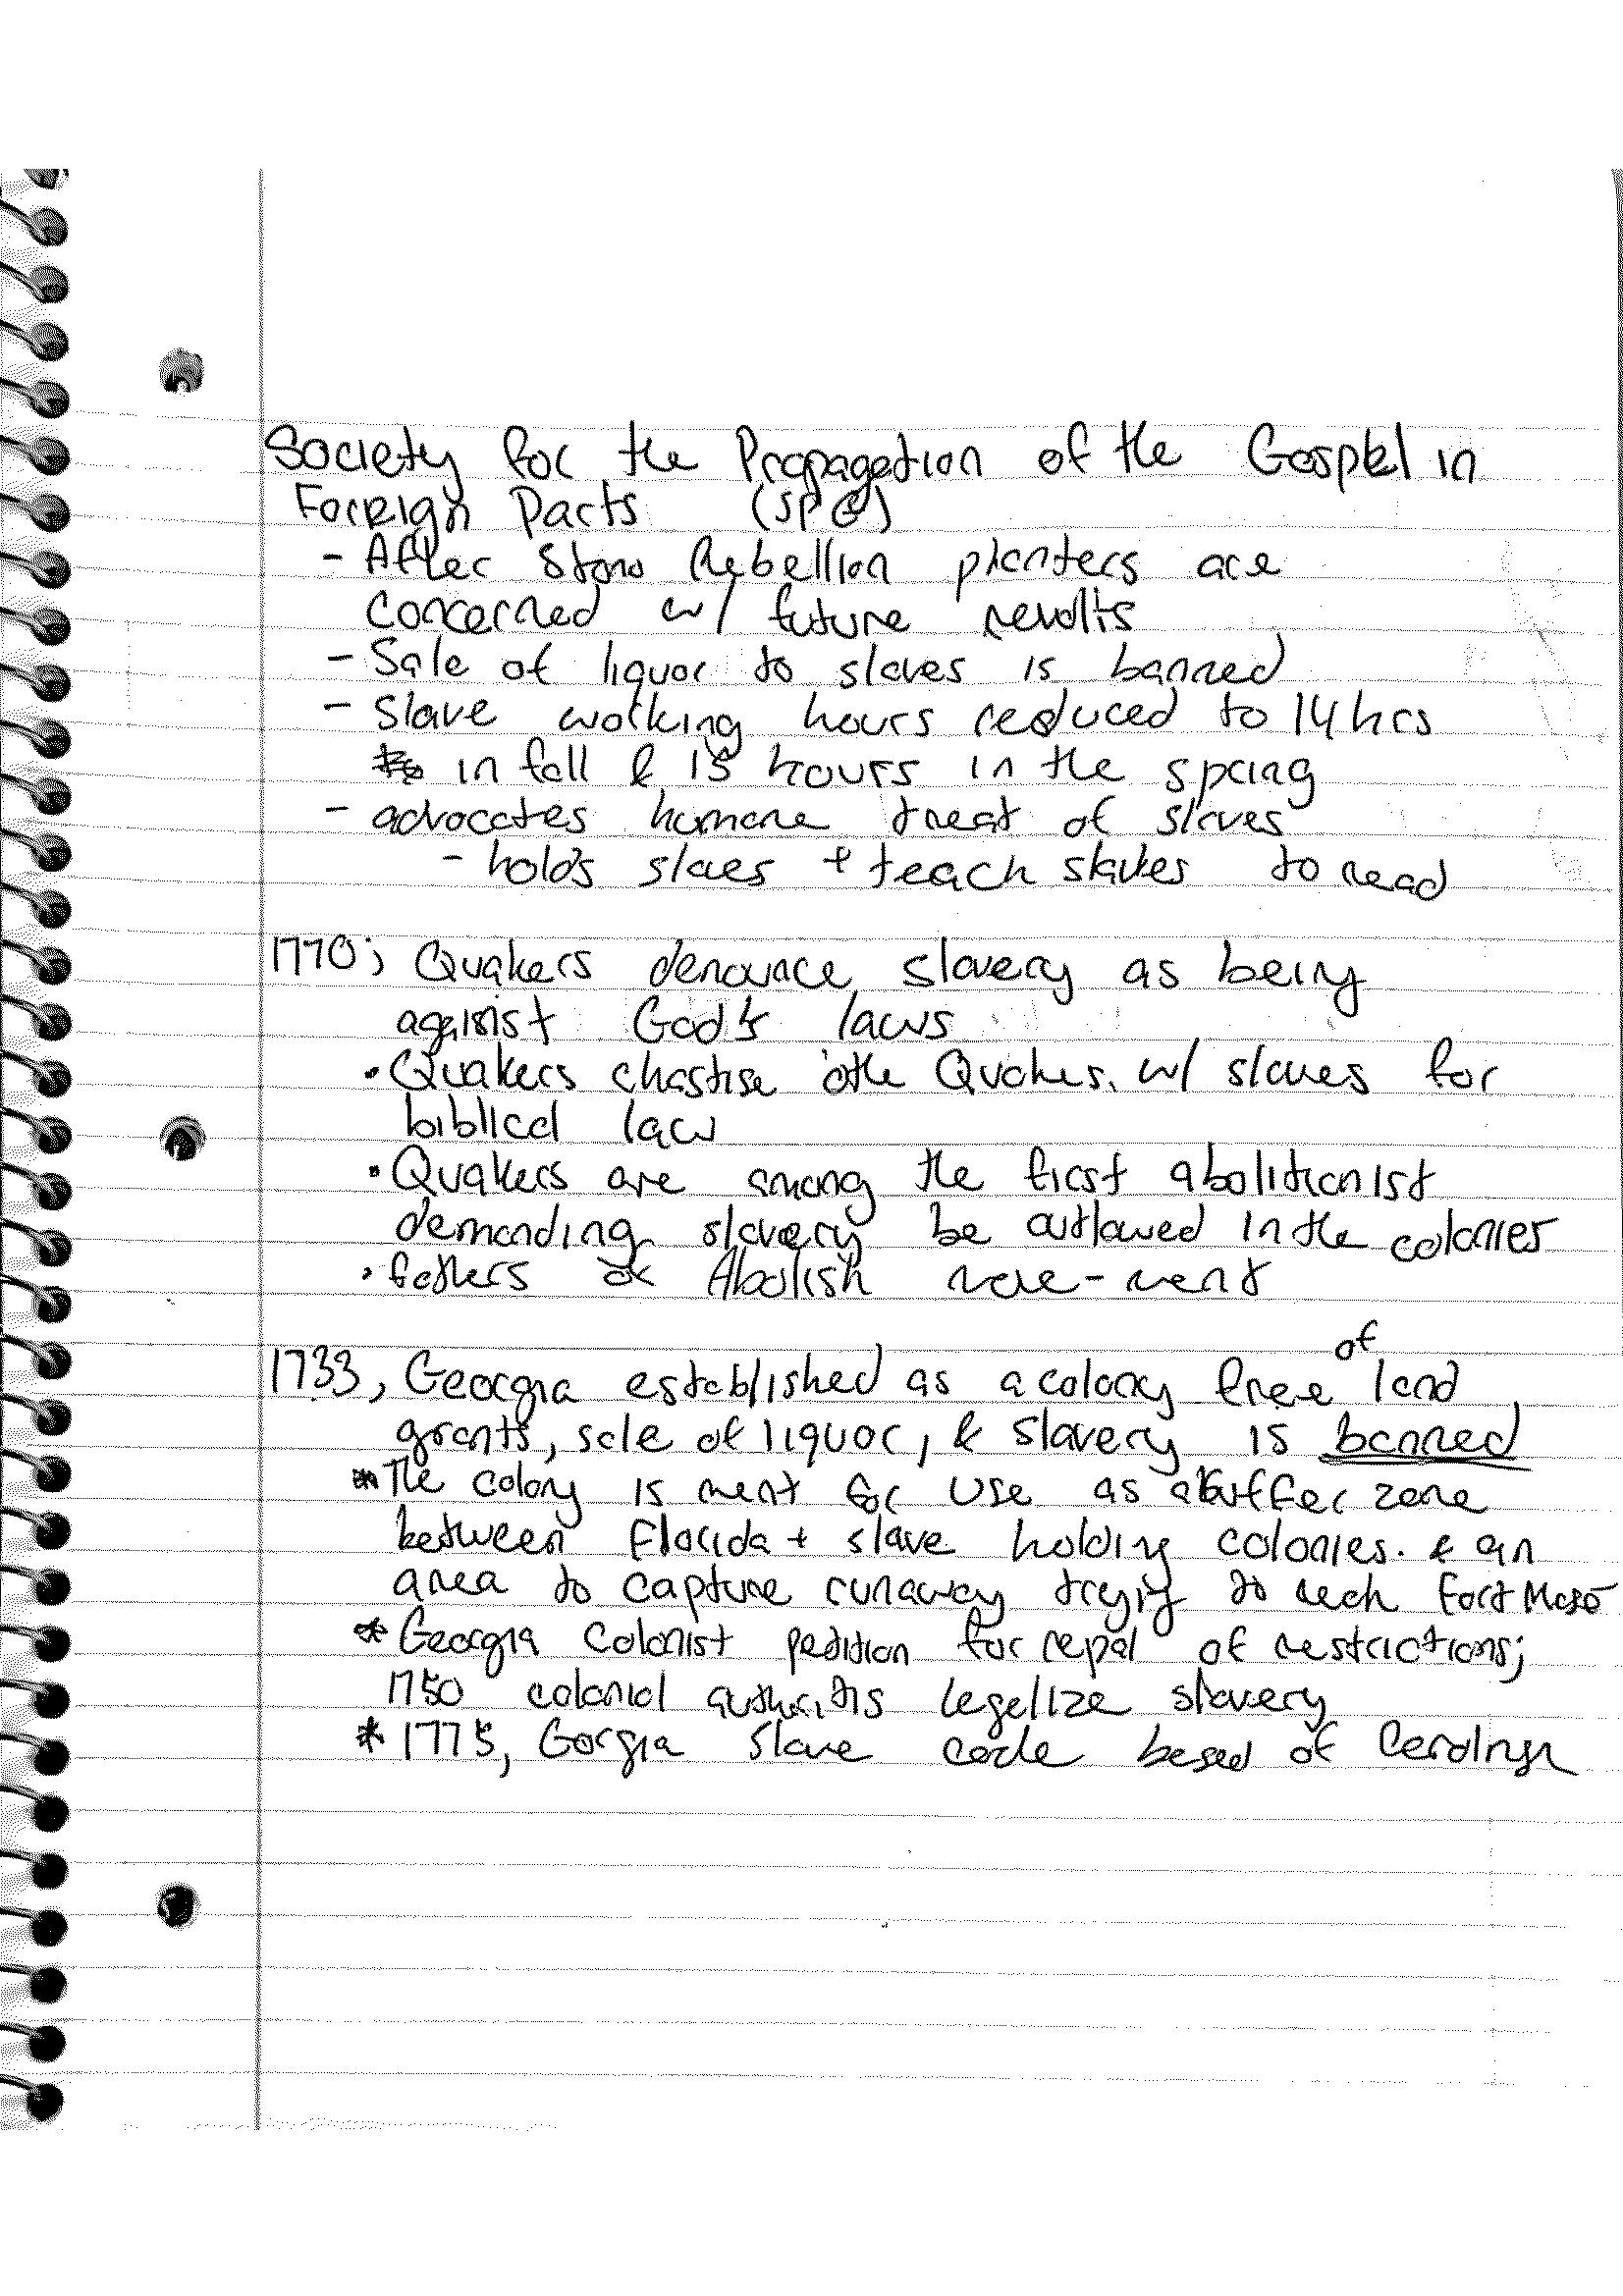 Society for the Propagation of the Gospel in
Foreign Parts (SPG)
- After Stono Rebellion planters are
concerned w/ future revolts
- Sale of liquor to slaves is banned
- Slave working hours reduced to 14 hrs
in fall & 15 hours in the spring
- advocates humane treat of slaves
- holds slaes + teach slaves to read
1770; Quakers denounce slavery as being
against God's laws
• Quakers chastise othe Quakes. w/ slaves for
biblical law
• Quakers are among the first abolitionist
demanding slavery be outlawed in the colonies
• fathers of Abolish move-ment
1733, Georgia established as a colony free of land
grants, sale of liquor, & slavery is banned
* The colony is ment for use as a buffer zone
between Florida + slave holding colonies. & an
area to capture runaway trying to rech Fort Mose
* Georgia Colonist petition for repal of restrictions;
1750 colonial legelize slavery
* 1775, Gorgia Slave code based of